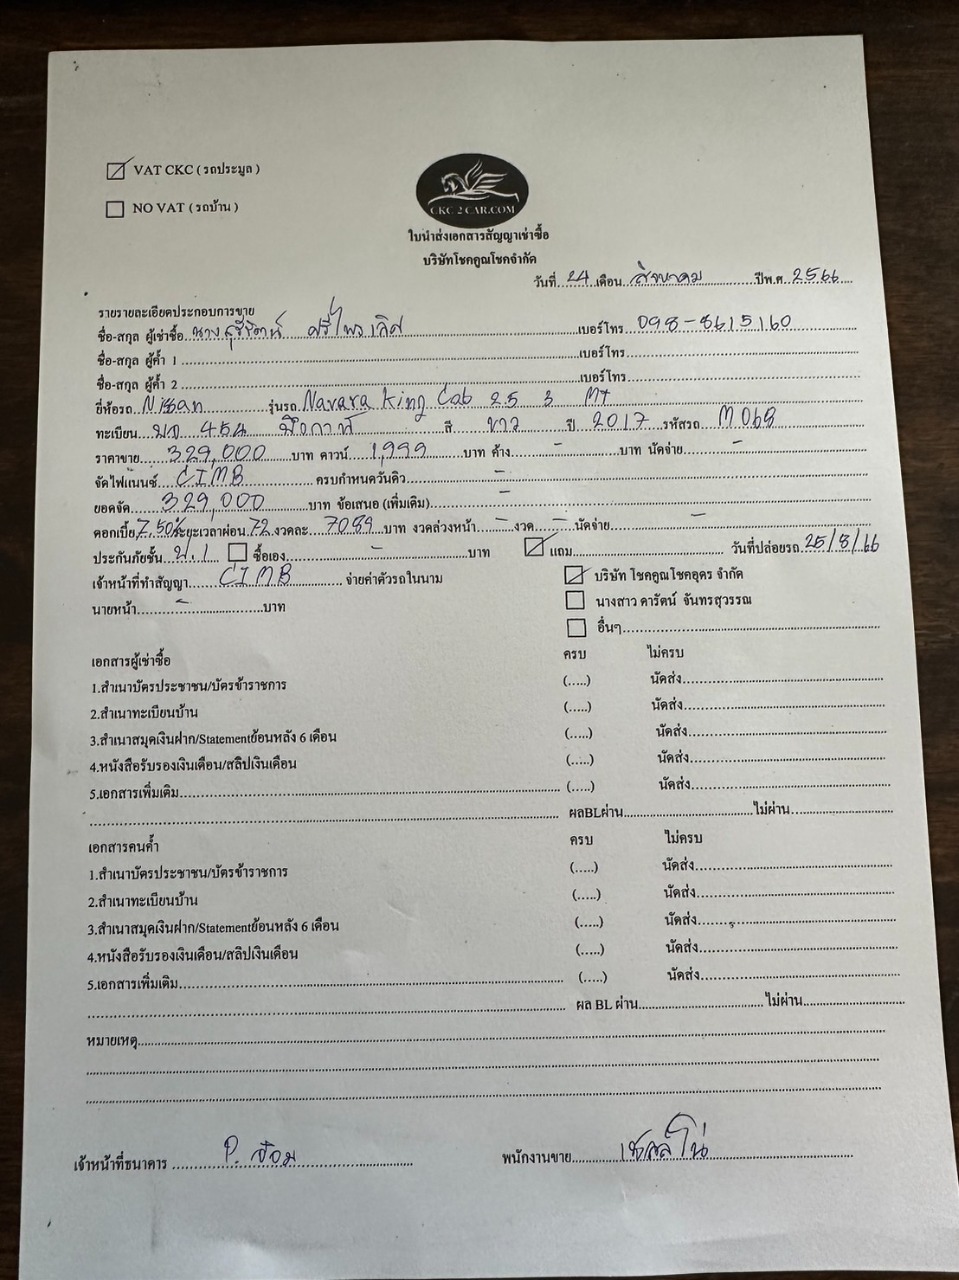 VAT CKC ( รถประมูล )
NO VAT ( รถบ้าน )
CKC 2 CAR.COM
ใบนำส่งเอกสารสัญญาเช่าซื้อ
บริษัทโชคคูณโชคจำกัด
วันที่ 24 เดือน สิงหาคม ปีพ.ศ. 2566
รายรายละเอียดประกอบการขาย
ชื่อ-สกุล ผู้เช่าซื้อ นาง เบอร์โทร 098-8615160
ชื่อ-สกุล ผู้ค้ำ 1 เบอร์โทร
ชื่อ-สกุล ผู้ค้ำ 2 เบอร์โทร
ยี่ห้อรถ Nissan รุ่นรถ Navara King Cab 2.5 MT
ทะเบียน 454 บึงกาฬ สี ขาว ปี 2017 รหัสรถ M068
ราคาขาย 329,000 บาท ดาวน์ 1,999 บาท ค้าง - บาท นัดจ่าย -
จัดไฟแนนซ์ CIMB ครบกำหนดวันคิว -
ยอดจัด 329,000 บาท ข้อเสนอ (เพิ่มเติม) -
ดอกเบี้ย 7.50% ระยะเวลาผ่อน 72 งวดละ 7089 บาท งวดล่วงหน้า - งวด - นัดจ่าย -
ประกันภัยชั้น ป.1 ซื้อเอง - บาท แถม วันที่ปล่อยรถ 25/8/66
เจ้าหน้าที่ทำสัญญา CIMB จ่ายค่าตัวรถในนาม บริษัท โชคคูณโชคอุดร จำกัด
นายหน้า - บาท นางสาว ดารัตน์ จันทรสุวรรณ
อื่นๆ
เอกสารผู้เช่าซื้อ ครบ ไม่ครบ
1.สำเนาบัตรประชาชน/บัตรข้าราชการ (.....) นัดส่ง
2.สำเนาทะเบียนบ้าน (.....) นัดส่ง
3.สำเนาสมุดเงินฝาก/Statementย้อนหลัง 6 เดือน (.....) นัดส่ง
4.หนังสือรับรองเงินเดือน/สลิปเงินเดือน (.....) นัดส่ง
5.เอกสารเพิ่มเติม (.....) นัดส่ง
ผลBLผ่าน ไม่ผ่าน
เอกสารคนค้ำ ครบ ไม่ครบ
1.สำเนาบัตรประชาชน/บัตรข้าราชการ (.....) นัดส่ง
2.สำเนาทะเบียนบ้าน (.....) นัดส่ง
3.สำเนาสมุดเงินฝาก/Statementย้อนหลัง 6 เดือน (.....) นัดส่ง
4.หนังสือรับรองเงินเดือน/สลิปเงินเดือน (.....) นัดส่ง
5.เอกสารเพิ่มเติม (.....) นัดส่ง
ผล BL ผ่าน ไม่ผ่าน
หมายเหตุ
เจ้าหน้าที่ธนาคาร P. พนักงานขาย